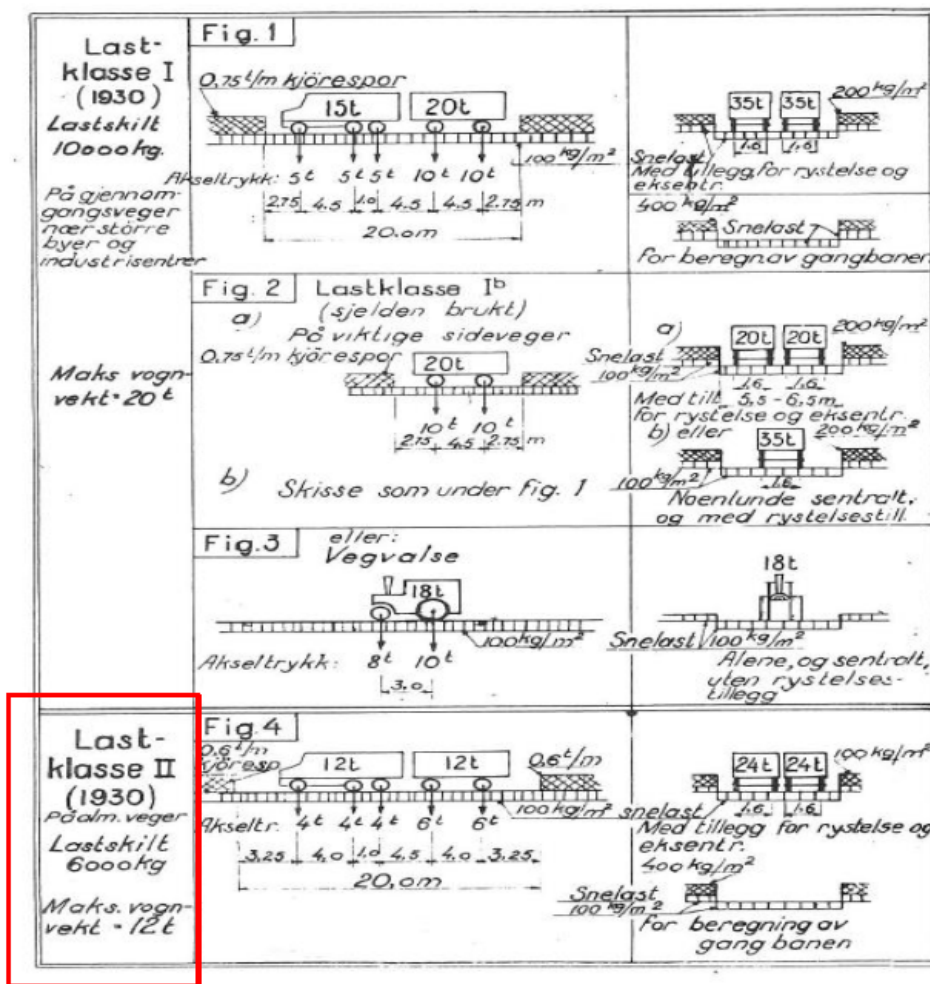 Last-
klasse I
(1930)
Lastskilt
10000kg.
På gjennom-
gangsveger
nær större
byer og
industrisentrer
Fig. 1
0,75 t/m kjörespor
15t 20t
100 kg/m²
Akseltrykk: 5t 5t 5t 10t 10t
2.75 4.5 1.0 4.5 4.5 2.75 m
20.0m
35t 35t
200 kg/m²
1,6 1,6
Snelast
Med tillegg for rystelse og
eksentr.
400 kg/m²
Snelast
for beregn. av gangbanen
Maks vogn-
vekt = 20t
Fig. 2
Lastklasse Ib
(sjelden brukt)
a)
På viktige sideveger
0,75 t/m kjörespor
20t
10t 10t
2.75 4.5 2.75 m
b) Skisse som under fig. 1
a)
20t 20t
200 kg/m²
Snelast
100 kg/m²
1,6 1,6
Med till. 5,5 - 6,5m
for rystelse og eksentr.
b) eller
35t
200 kg/m²
100 kg/m²
1,6
Noenlunde sentralt,
og med rystelsestill.
Fig. 3
eller:
Vegvalse
18t
100 kg/m²
Akseltrykk: 8t 10t
3.0
18t
Snelast 100 kg/m²
Alene, og sentralt,
uten rystelses-
tillegg
Last-
klasse II
(1930)
På alm. veger
Lastskilt
6000kg
Maks. vogn-
vekt = 12t
Fig. 4
0.6 t/m
kjöresp.
12t 12t
0,6 t/m
100 kg/m² snelast
Akseltr. 4t 4t 4t 6t 6t
3.25 4.0 1.0 4.5 4.0 3.25
20,0m
24t 24t
100 kg/m²
1,6 1,6
Med tillegg for rystelse og
eksentr.
400 kg/m²
Snelast
100 kg/m²
for beregning av
gang banen